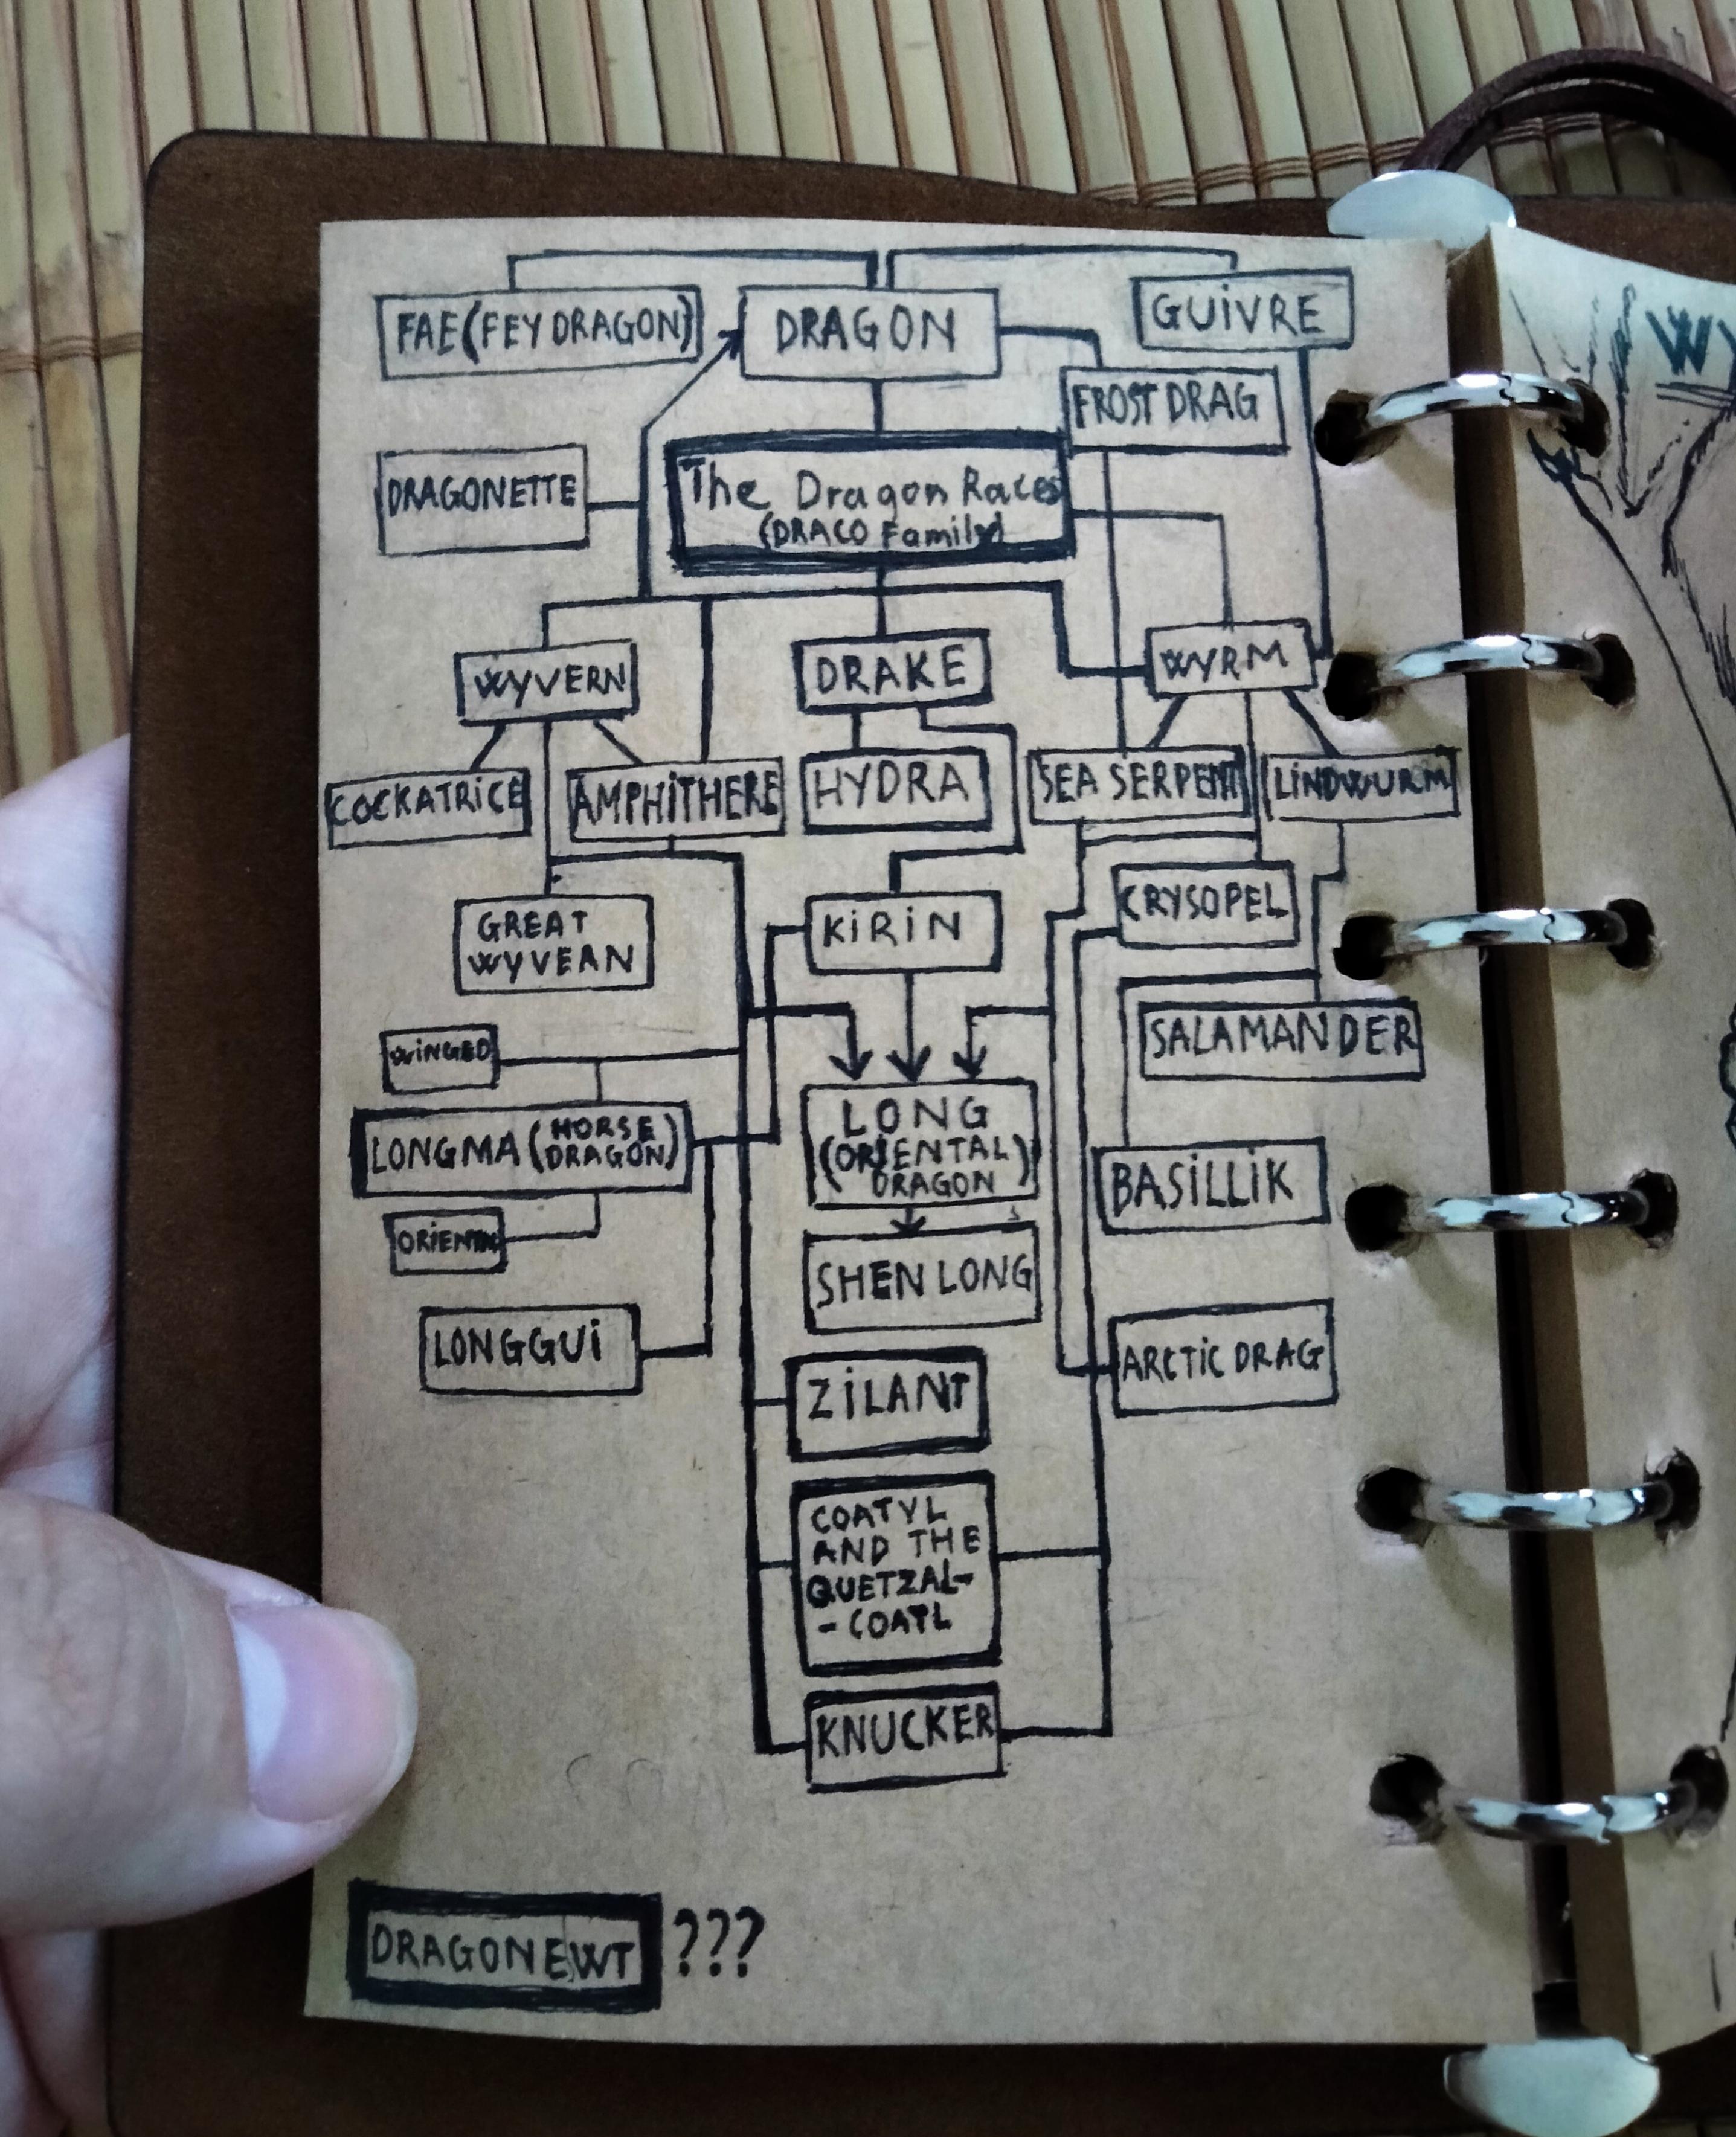 FAE (FEY DRAGON)
DRAGON
GUiVRE
FROST DRAG
DRAGONETTE
The Dragon Races
(DRACO Family)
WYVERN
DRAKE
WYRM
COCKATRiCE
AMPHiTHERE
HYDRA
SEA SERPENT
LiNDWURM
GREAT
WYVEAN
KiRiN
CRYSOPEL
WiNGED
SALAMANDER
LONGMA (HORSE
DRAGON)
LONG
(ORIENTAL
DRAGON)
BASiLLiK
SHEN LONG
LONGGUi
ZiLANT
ARCTiC DRAG
COATYL
AND THE
QUETZAL-
- COATL
KNUCKER
DRAGONEWT ???
W